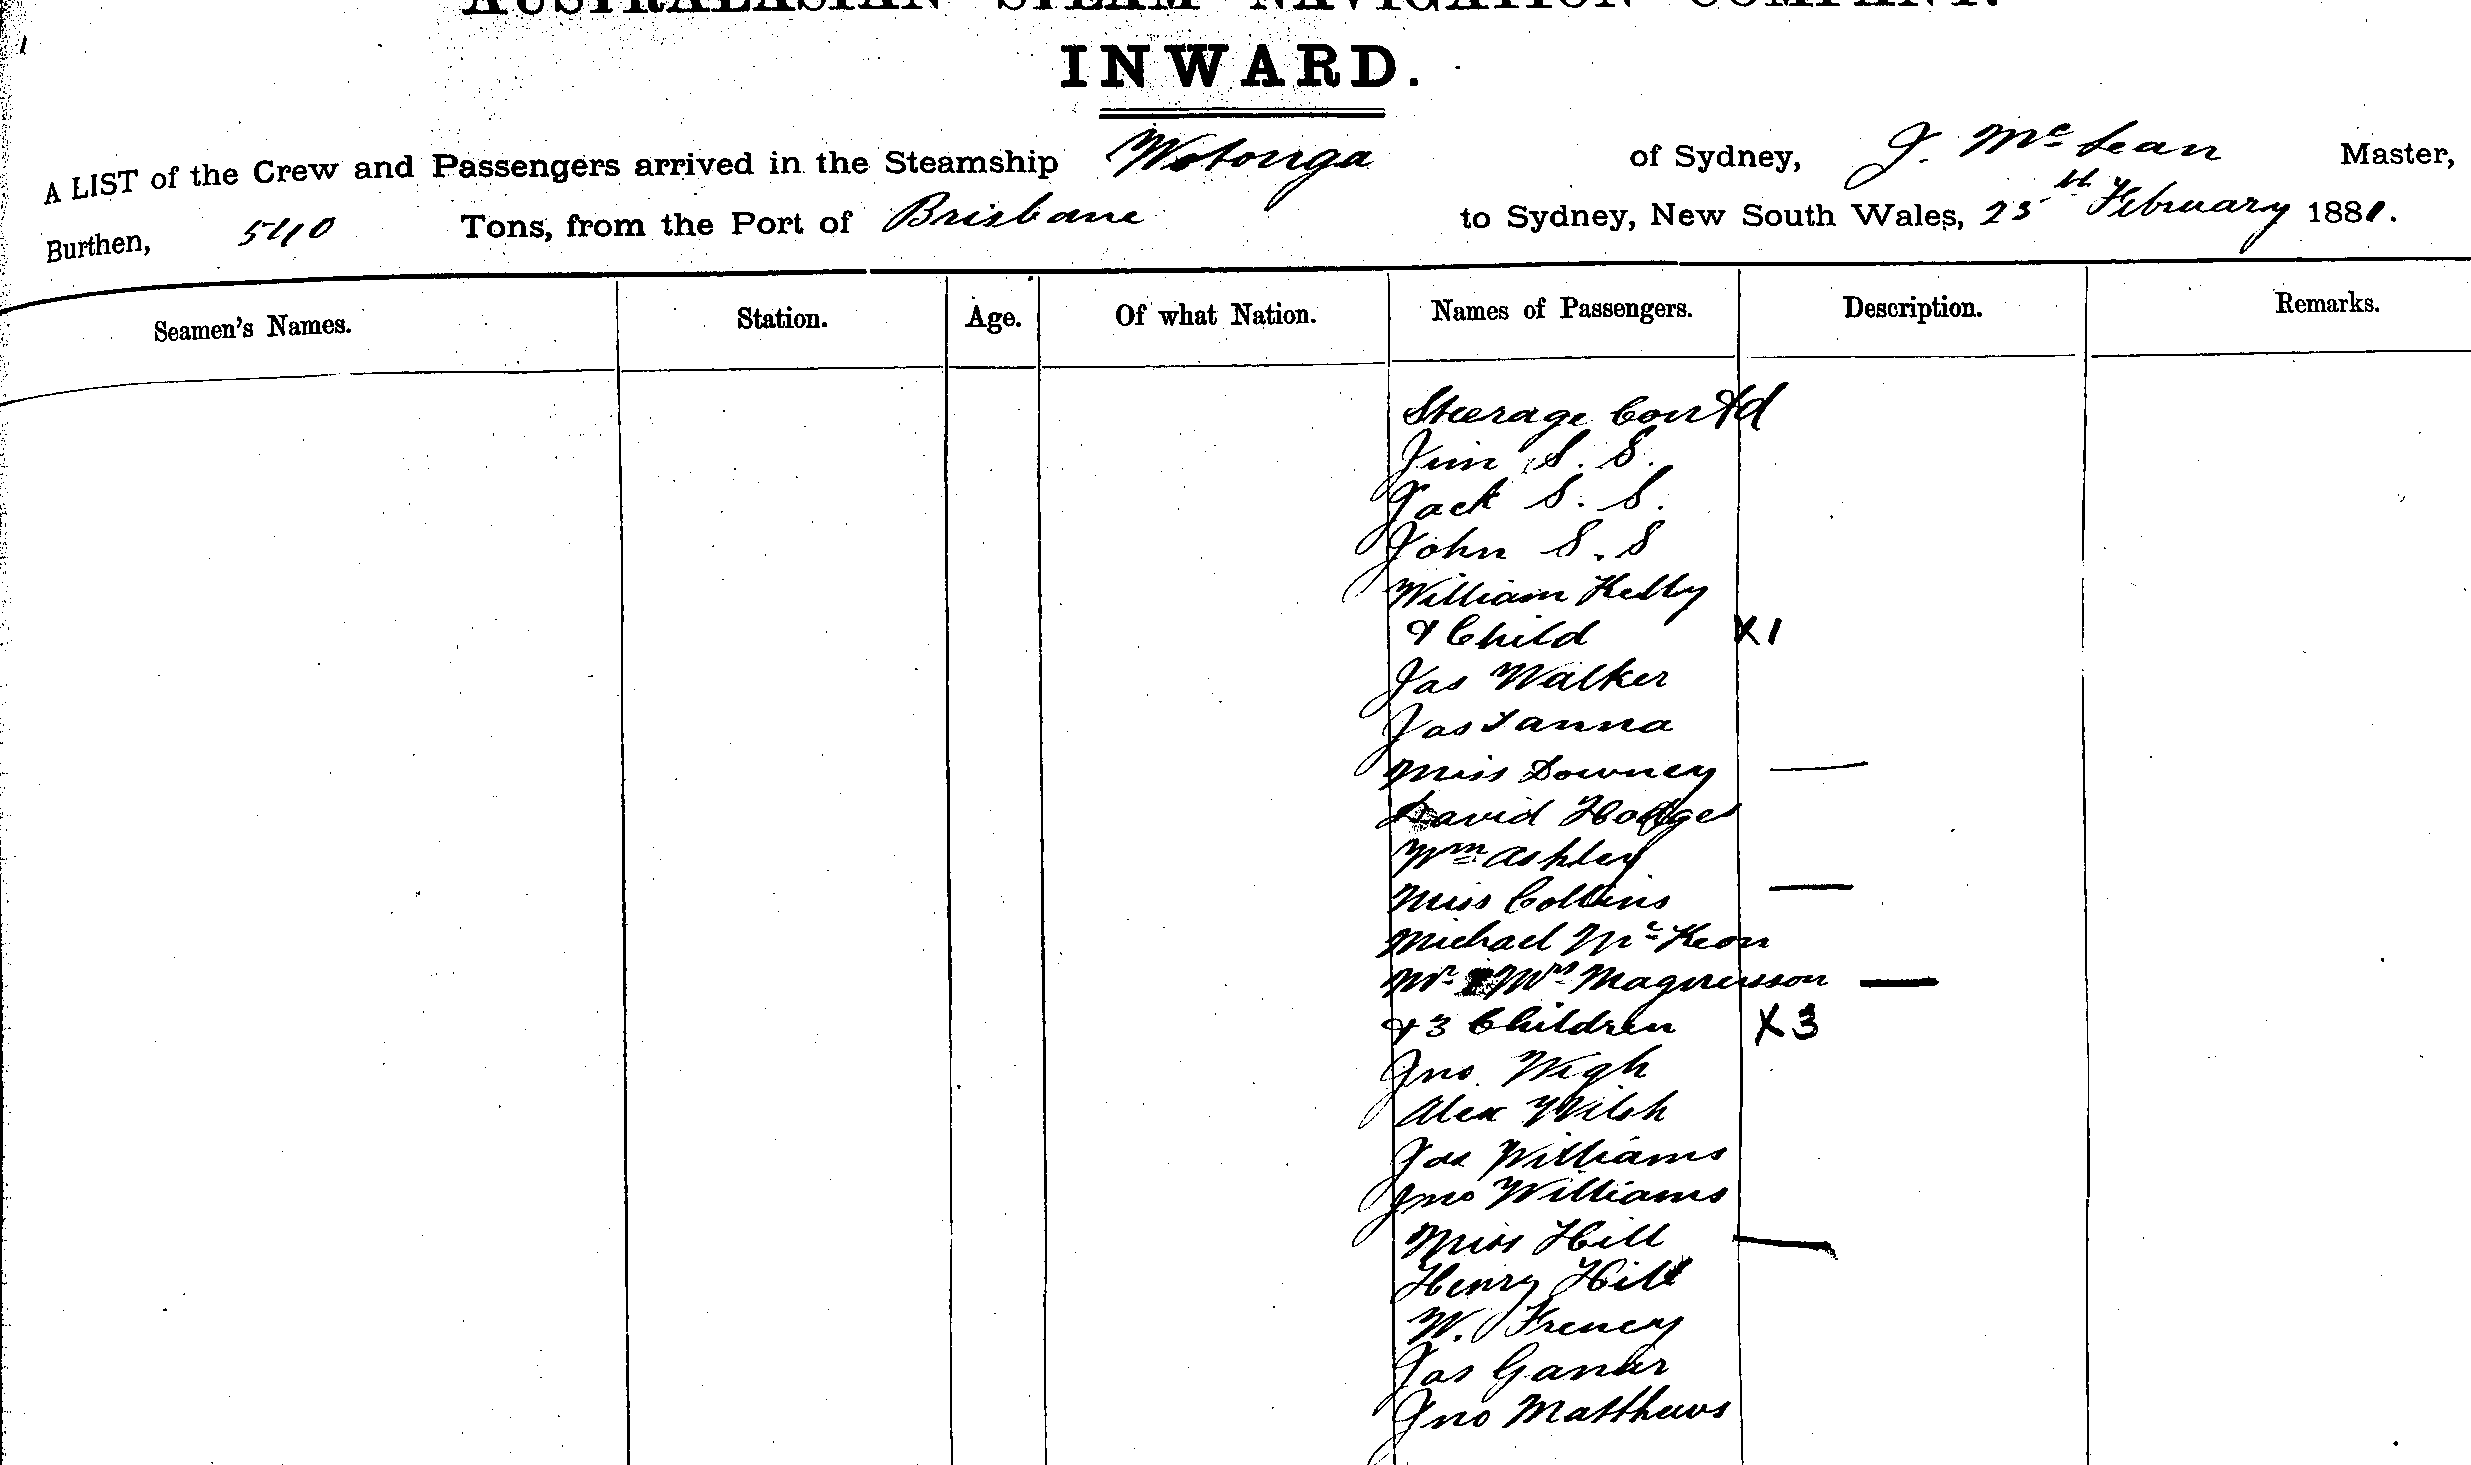 AUSTRALASIAN STEAM NAVIGATION COMPANY.
INWARD.
A LIST of the Crew and Passengers arrived in the Steamship Wotonga of Sydney, J. McLean Master,
Burthen, 540 Tons, from the Port of Brisbane to Sydney, New South Wales, 25th February 1881.
Seamen's Names. Station. Age. Of what Nation. Names of Passengers. Description. Remarks.
Steerage Contd
Jim S. S.
Jack S. S.
John S. S
William Kelly
& Child X1
Jas Walker
Jas Tanna
Miss Downey —
David Hodges
Wm Ashley
Miss Collins —
Michael McKeon
Mr & Mrs Magnusson —
& 3 Children X3
Jno. Wigh
Alex
Jas Williams
Jno Williams
Miss Hill —
Henry Hill
W. Freney
Jas
Jno Matthews